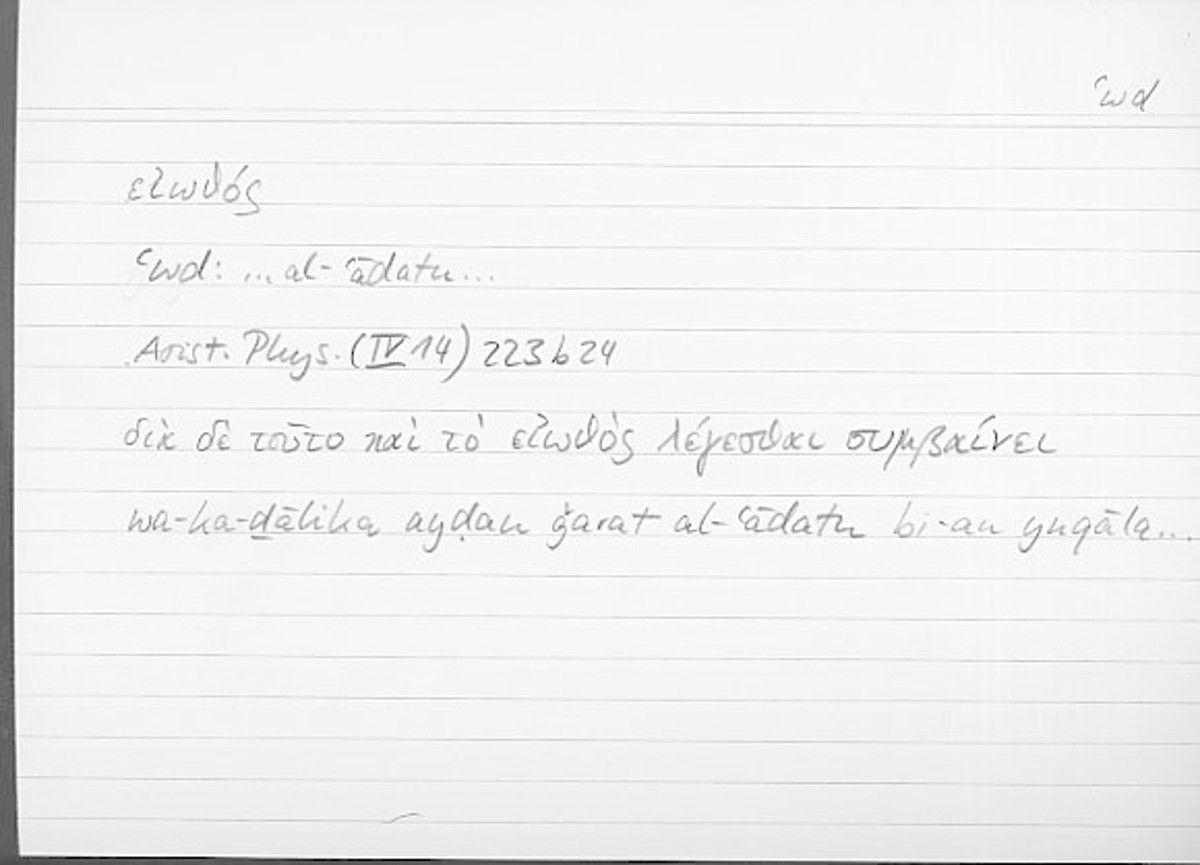 ʿwd
εἰωθός
ʿwd: ... al-ʿādatu...
Arist. Phys. (IV 14) 223b24
διὰ δὲ τοῦτο καὶ τὸ εἰωθὸς λέγεσθαι συμβαίνει
wa-ka-ḏālika ayḍan ǧarat al-ʿādatu bi-an yuqāla...